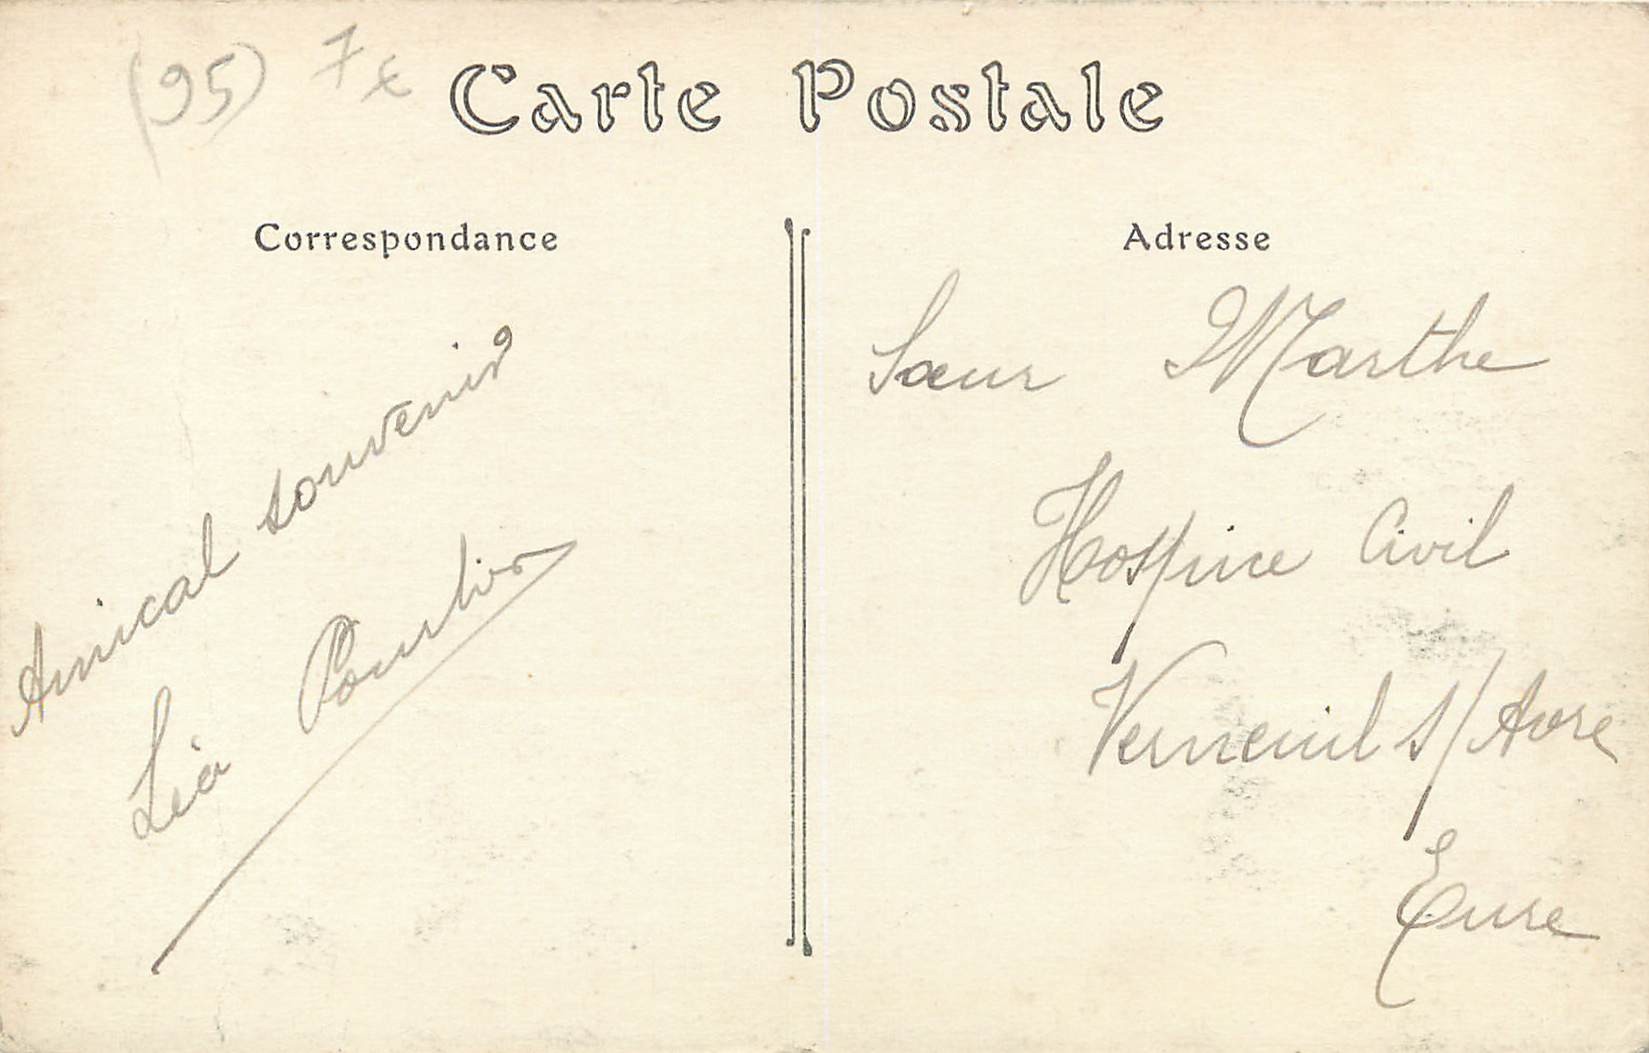 (95) 7€
Carte Postale
Correspondance
Amical souvenir
Léa
Adresse
Sœur Marthe
Hospice Civil
Verneuil s/Avre
Eure